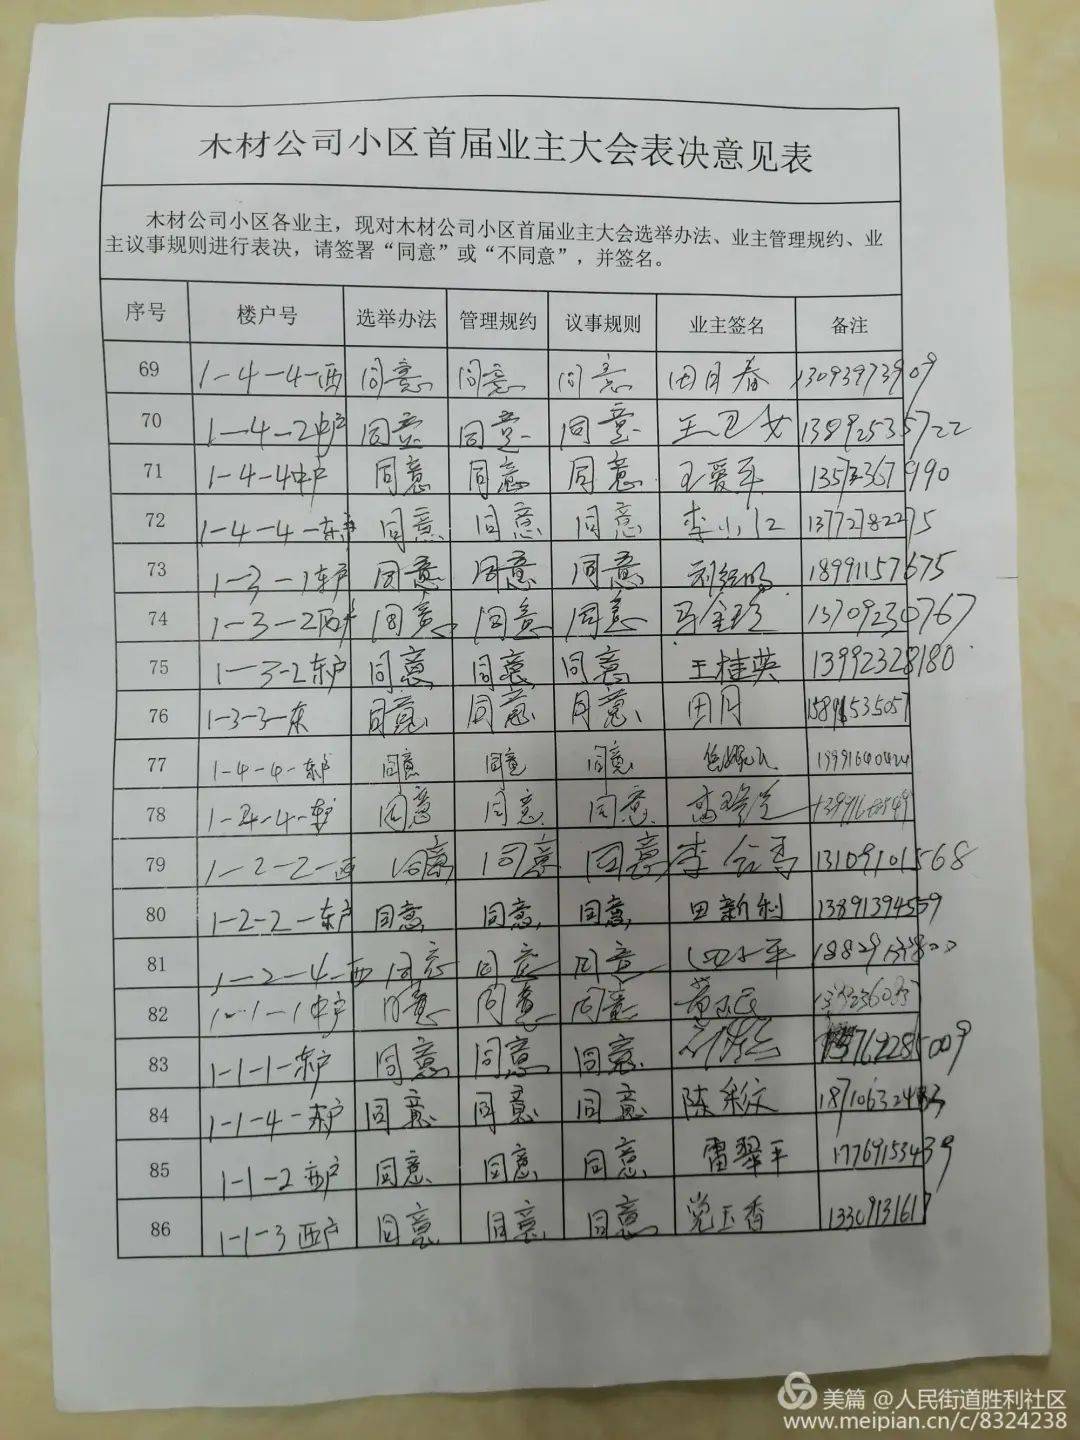 木材公司小区首届业主大会表决意见表
木材公司小区各业主，现对木材公司小区首届业主大会选举办法、业主管理规约、业
主议事规则进行表决，请签署“同意”或“不同意”，并签名。
序号 楼户号 选举办法 管理规约 议事规则 业主签名 备注
69 1-4-4-西 同意 同意 同意 田月春 13093973909
70 1-4-2中户 同意 同意 同意 王卫女 13892535722
71 1-4-4中户 同意 同意 同意 王爱军
72 1-4-4-东户 同意 同意 同意 李小红 13772782275
73 1-3-1东户 同意 同意 同意 18991157675
74 1-3-2西户 同意 同意 同意 13709230767
75 1-3-2东户 同意 同意 同意 王桂英 13992328180
76 1-3-3-东 同意 同意 同意 田月
77 1-4-4-东户 同意 同意 同意 19991640424
78 1-4-4-东户 同意 同意 同意
79 1-2-2-西 同意 同意 同意 13109101568
80 1-2-2-东户 同意 同意 同意 田新利 13891394559
81 1-2-4-西 同意 同意 同意
82 1-1-1中户 同意 同意 同意
83 1-1-1-东户 同意 同意 同意
84 1-1-4-东户 同意 同意 同意 陈彩文
85 1-1-2西户 同意 同意 同意 雷翠平 17769153439
86 1-1-3西户 同意 同意 同意 党玉香 13309131617
美篇 @人民街道胜利社区
www.meipian.cn/c/8324238